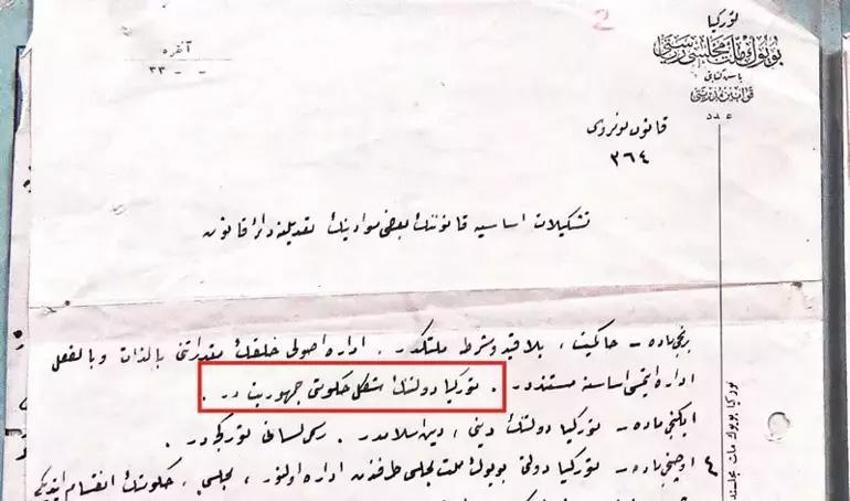 2
توركيا
بویوك ملت مجلسی ریاستی
باش كتابتی
قوانین مدیریتی
عدد
آنقره
٣٣ - -
قانون نومروسی
٣٦٤
تشكیلات اساسیه قانوننك بعض موادینك تعدیلنه دائر قانون
برنجی ماده – حاكمیت، بلا قید و شرط ملتكدر . اداره اصولی خلقك مقدراتنی بالذات و بالفعل
اداره ایتمسی اساسنه مستنددر . توركیا دولتنك شكل حكومتی جمهوریت در .
ایكنجی ماده – توركیا دولتنك دینی ، دین اسلامدر . رسمی لسانی توركجه در .
اوچنجی ماده – توركیا دولتی بویوك ملت مجلسی طرفندن اداره اولنور ، مجلس ، حكومتك انقسام ایتدیكی
٤
توركیا بویوك ملت مجلسی